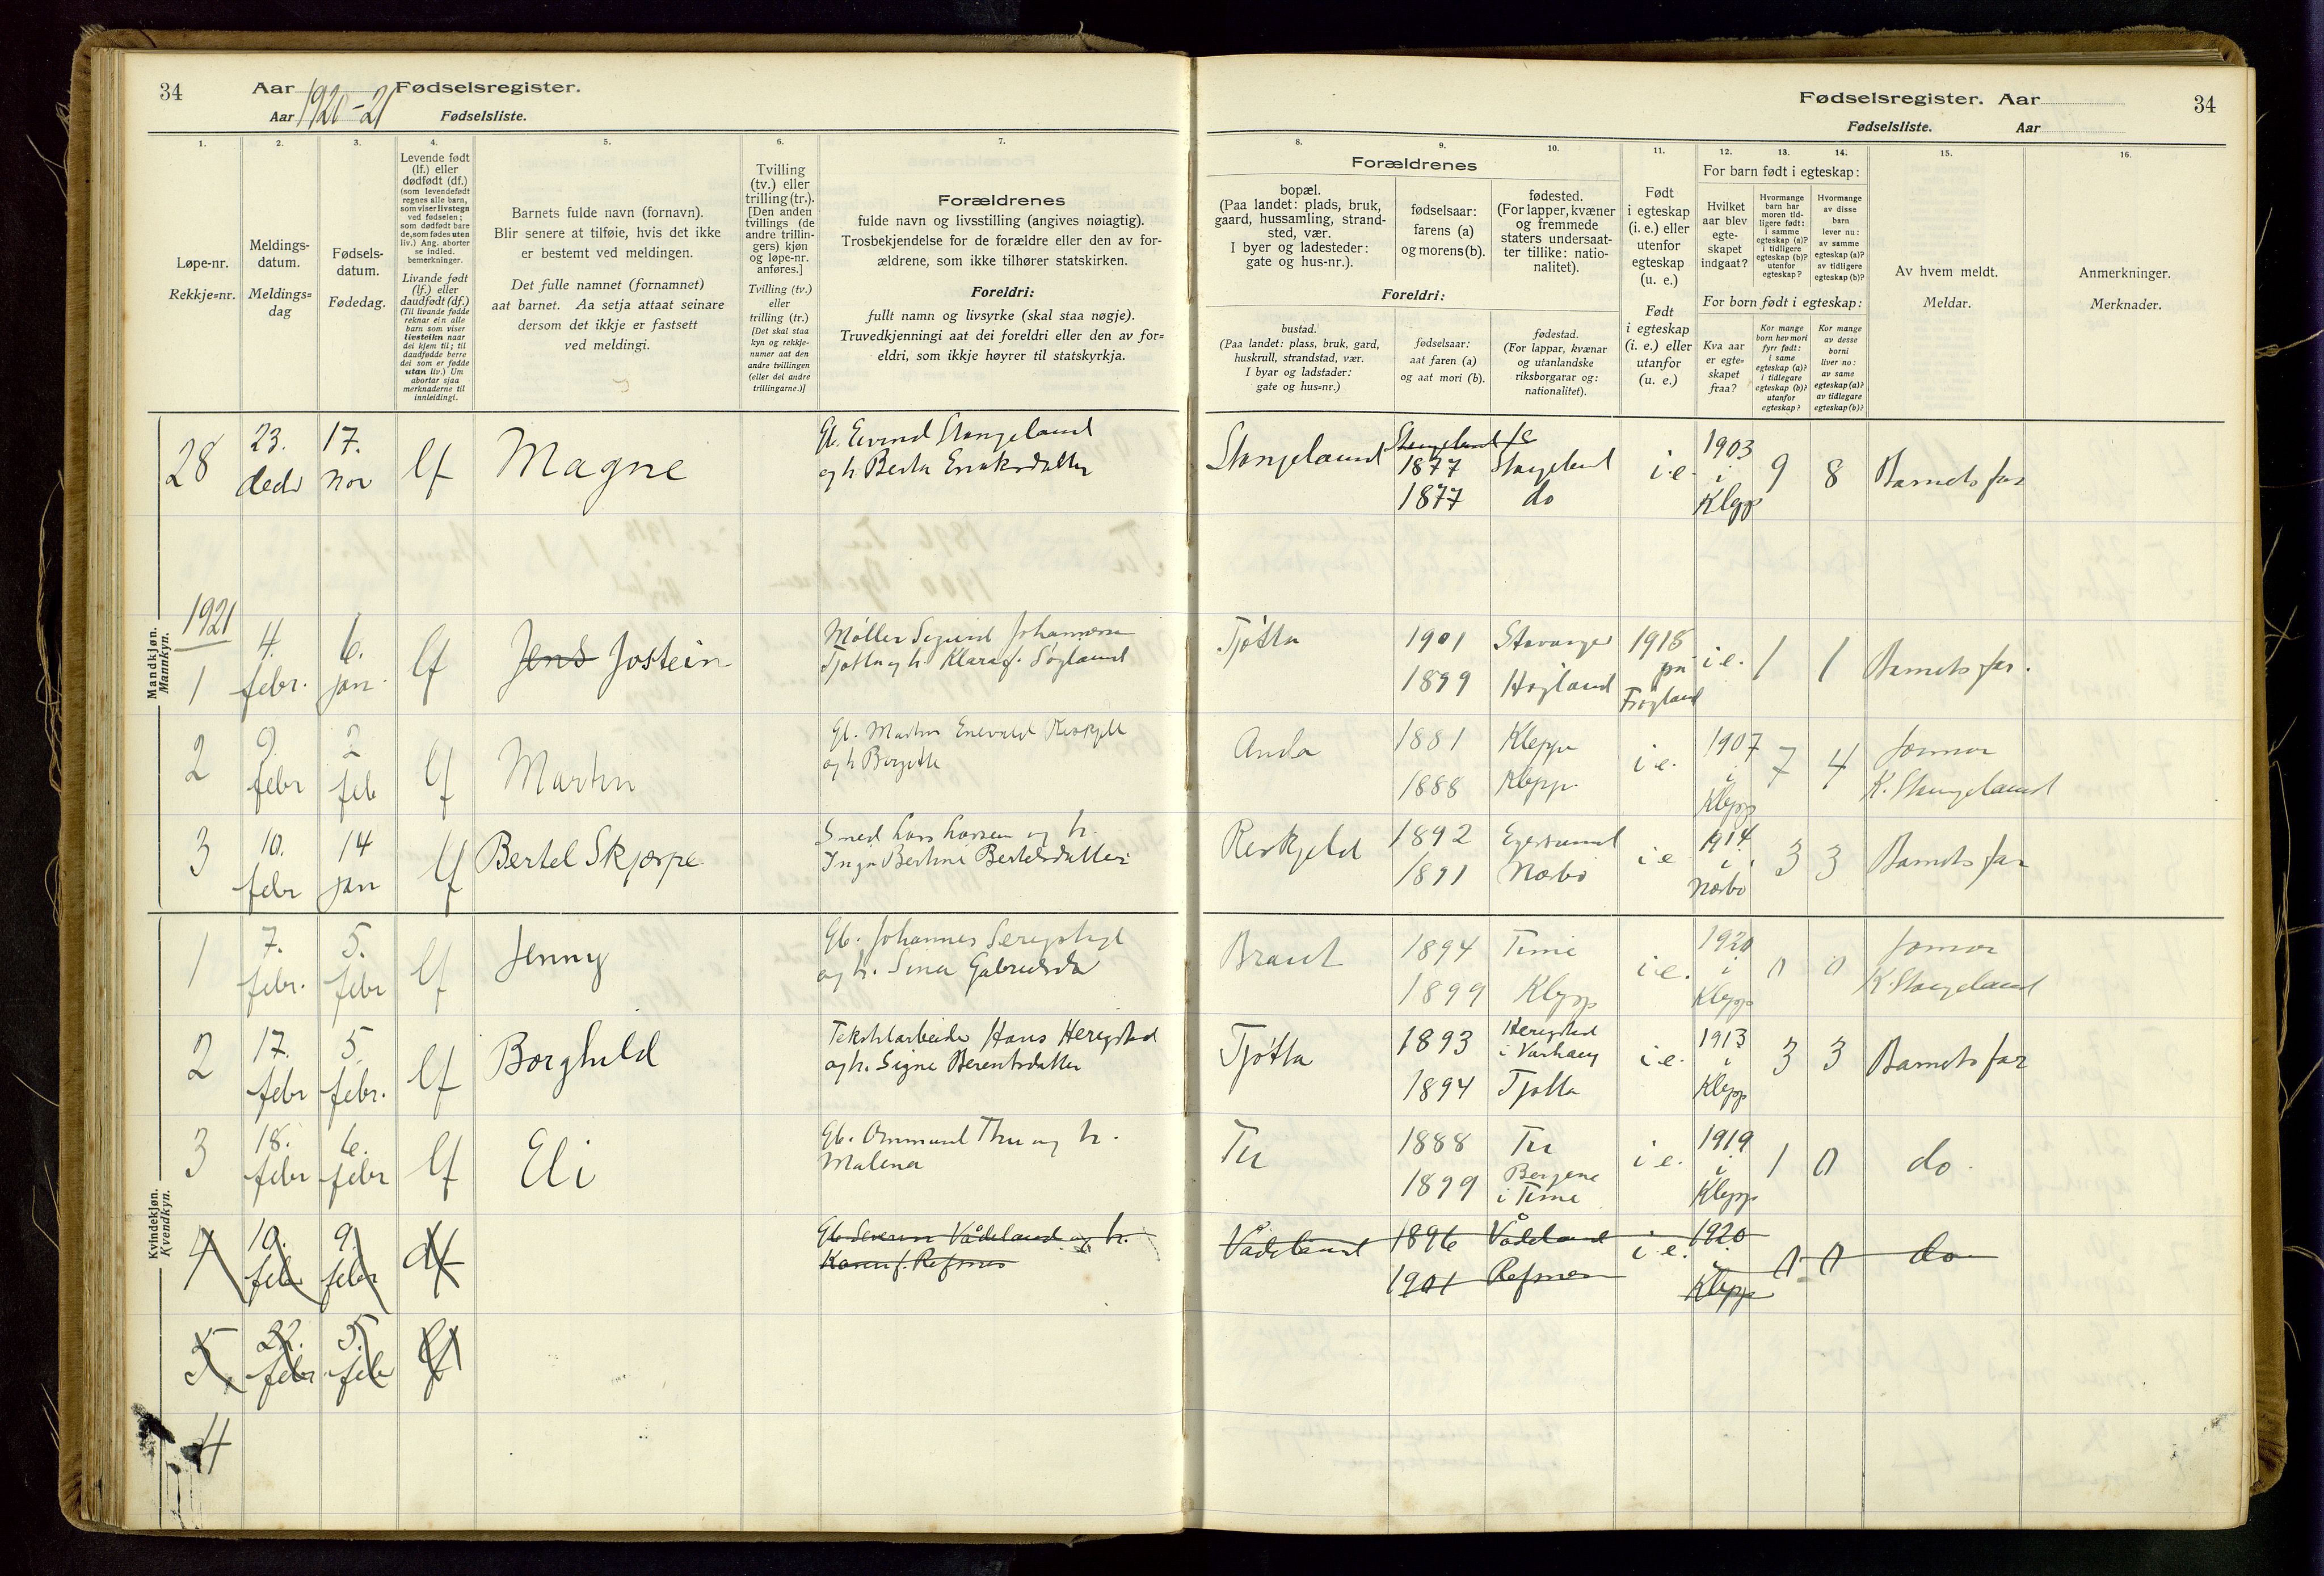 34
Aar 1920-21 Fødselsregister.
Aar Fødselsliste.
Fødselsregister. Aar
Fødselsliste. Aar
34
1.
Løpe-nr.
Rekkje=nr.
2.
Meldings-
datum.
Meldings=
dag
3.
Fødsels-
datum.
Fødedag.
4.
Levende født
(lf.) eller
dødfødt (df.)
(som levendefødt
regnes alle barn,
som viser livstegn
ved fødselen;
som dødfødt bare
de, som fødes uten
liv.) Ang. aborter
se indled.
bemerkninger.
Livande født
(lf.) eller
daudfødt (df.)
(Til livande fødde
reknar ein alle
born som viser
livsteikn naar
dei kjem til; til
daudfødde berre
dei som er fødde
utan liv.) Um
abortar sjaa
merknaderne til
innleidingi.
5.
Barnets fulde navn (fornavn).
Blir senere at tilføie, hvis det ikke
er bestemt ved meldingen.
Det fulle namnet (fornamnet)
aat barnet. Aa setja attaat seinare
dersom det ikkje er fastsett
ved meldingi.
6.
Tvilling
(tv.) eller
trilling (tr.).
[Den anden
tvillings (de
andre trillin-
gers) kjøn
og løpe-nr.
anføres.]
Tvilling (tv.)
eller
trilling (tr.)
[Det skal staa
kyn og rekkje-
numer aat den
andre tvillingen
(eller dei andre
trillingarne.)]
7.
Forældrenes
fulde navn og livsstilling (angives nøiagtig).
Trosbekjendelse for de forældre eller den av for-
ældrene, som ikke tilhører statskirken.
Foreldri:
fullt namn og livsyrke (skal staa nøgje).
Truvedkjenningi aat dei foreldri eller den av for=
eldri, som ikkje høyrer til statskyrkja.
8.
Forældrenes
bopæl.
(Paa landet: plads, bruk,
gaard, hussamling, strand-
sted, vær.
I byer og ladesteder:
gate og hus-nr.).
Foreldri:
bustad.
(Paa landet: plass, bruk, gard,
huskrull, strandstad, vær.
I byar og ladstader:
gate og hus=nr.)
9.
fødselsaar:
farens (a)
og morens (b).
fødselsaar:
aat faren (a)
og aat mori (b).
10.
fødested.
(For lapper, kvæner
og fremmede
staters undersaat-
ter tillike: natio-
nalitet).
fødestad.
(For lappar, kvænar
og utanlandske
riksborgarar og:
nationalitet).
11.
Født
i egteskap
(i. e.) eller
utenfor
egteskap
(u. e.)
Født
i egteskap
(i. e.) eller
utanfor
(u. e.)
12.
For barn født i egteskap:
Hvilket
aar blev
egte-
skapet
indgaat?
For born født i egteskap:
Kva aar
er egte=
skapet
fraa?
13.
Hvormange
barn har
moren tid-
ligere født:
i samme
egteskap (a)?
i tidligere
egteskap (b)?
utenfor
egteskap?
Kor mange
born hev mori
fyrr født:
i same
egteskap (a)?
i tidlegare
egteskap (b)?
utanfor
egteskap?
14.
Hvormange
av disse
barn
lever nu:
av samme
egteskap (a)?
av tidligere
egteskap (b)?
Kor mange
av desse
borni
liver no:
av same
egteskap (a)?
av tidlegare
egteskap (b)?
15.
Av hvem meldt.
Meldar.
16.
Anmerkninger.
Merknader.
Mandkjøn.
Mannkyn.
28 23. decbr 17. nov lf Magne
Gb. Eivind Stangeland
og h. Berta Eriksdatter
Stangeland 1877 Stangeland i.e. 1903 i Klepp 9 8 Barnets far
1877 do
1921
1 4. febr. 6. jan. lf Jens Jostein
Møller Sigurd Johannesen
Tjøtta og h. Klara f. Søyland
Tjøtta 1901 Stavanger 1918 på Frøyland i.e. 1 1 Barnets far.
1899 Høyland
2 9. febr 2 feb lf Martin
Gb. Martin Enevald Reskjelt
og h. Bergitte
Anda 1881 Klepp i.e. 1907 i Klepp 7 4 Jormor
1888 Klepp. K. Stangeland
3 10. febr 14 jan lf Bertel Skjærpe
Smed Lars Larsen og h.
Inga Bertine Bertelsdatter
Reskjeld 1892 Egersund i.e 1914 i Nærbø 3 3 Barnets far
1891 Nærbø
Kvindekjøn.
Kvendkyn.
1 7. febr. 5. febr lf Jenny
Gb. Johannes
og h. Sina Gabrielsda
Braut 1894 Time i.e. 1920 i Klepp 0 0 Jormor
1899 Klepp K. Stangeland
2 17. febr 5. febr. lf Borghild
Tekstilarbeider Hans Herigstad
og h. Signe Berentsdatter
Tjøtta 1893 Herigstad i Varhaug i.e. 1913 i Klepp 3 3 Barnets far
1894 Tjøtta
3 18. febr 6. febr lf Eli
Gb. Ommund Thu og h.
Malena
Tu 1888 Tu i.e. 1919 i Klepp 1 0 do.
1899 Bergene i Time
4 10. febr 9. febr df
Gb Severin Vådeland og h.
Karen f. Refsnes
Vådeland 1896 Vådeland i.e. 1920 i Klepp 0 0 do
1901 Refsnes
5 22. febr 5. feb lf
4